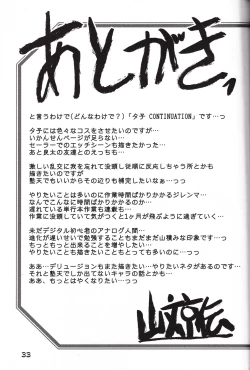 あとがき。
と言うわけで(どんなわけで?)「夕子 CONTINUATION」です…っ
夕子には色々なコスをさせたいのですが…
いかんせんページが足らない…
セーラーでのエッチシーンも描きたかった…
あと良太の友達とのえっちも…
激しい乱交に我を忘れて没頭し従順に反応しちゃう所とかも
描きたいのですが
塾天でもいいからその辺りも補完したいなぁ…っっ
やりたいことは多いのに作業時間ばかりかかるジレンマ…
なんでこんなに時間ばかりかかるのか…
遅れている単行本作業も連載も…
作業に没頭していて気がつくと1ヶ月が飛ぶように過ぎていく…
未だデジタル初心者のアナログ人間…
進化が遅いせいで勉強することもまだまだ山積みな印象です…っ
もっともっと出来ることを増やしたい…
やりたいことも描きたいこともとっても多いのに…っっ
ああ…デリュージョンもまた描きたい…やりたいネタがあるのです…
それと塾天でしか出てないキャラの話とかも…
ああ、もっとやりたくなりたい…っっ
33